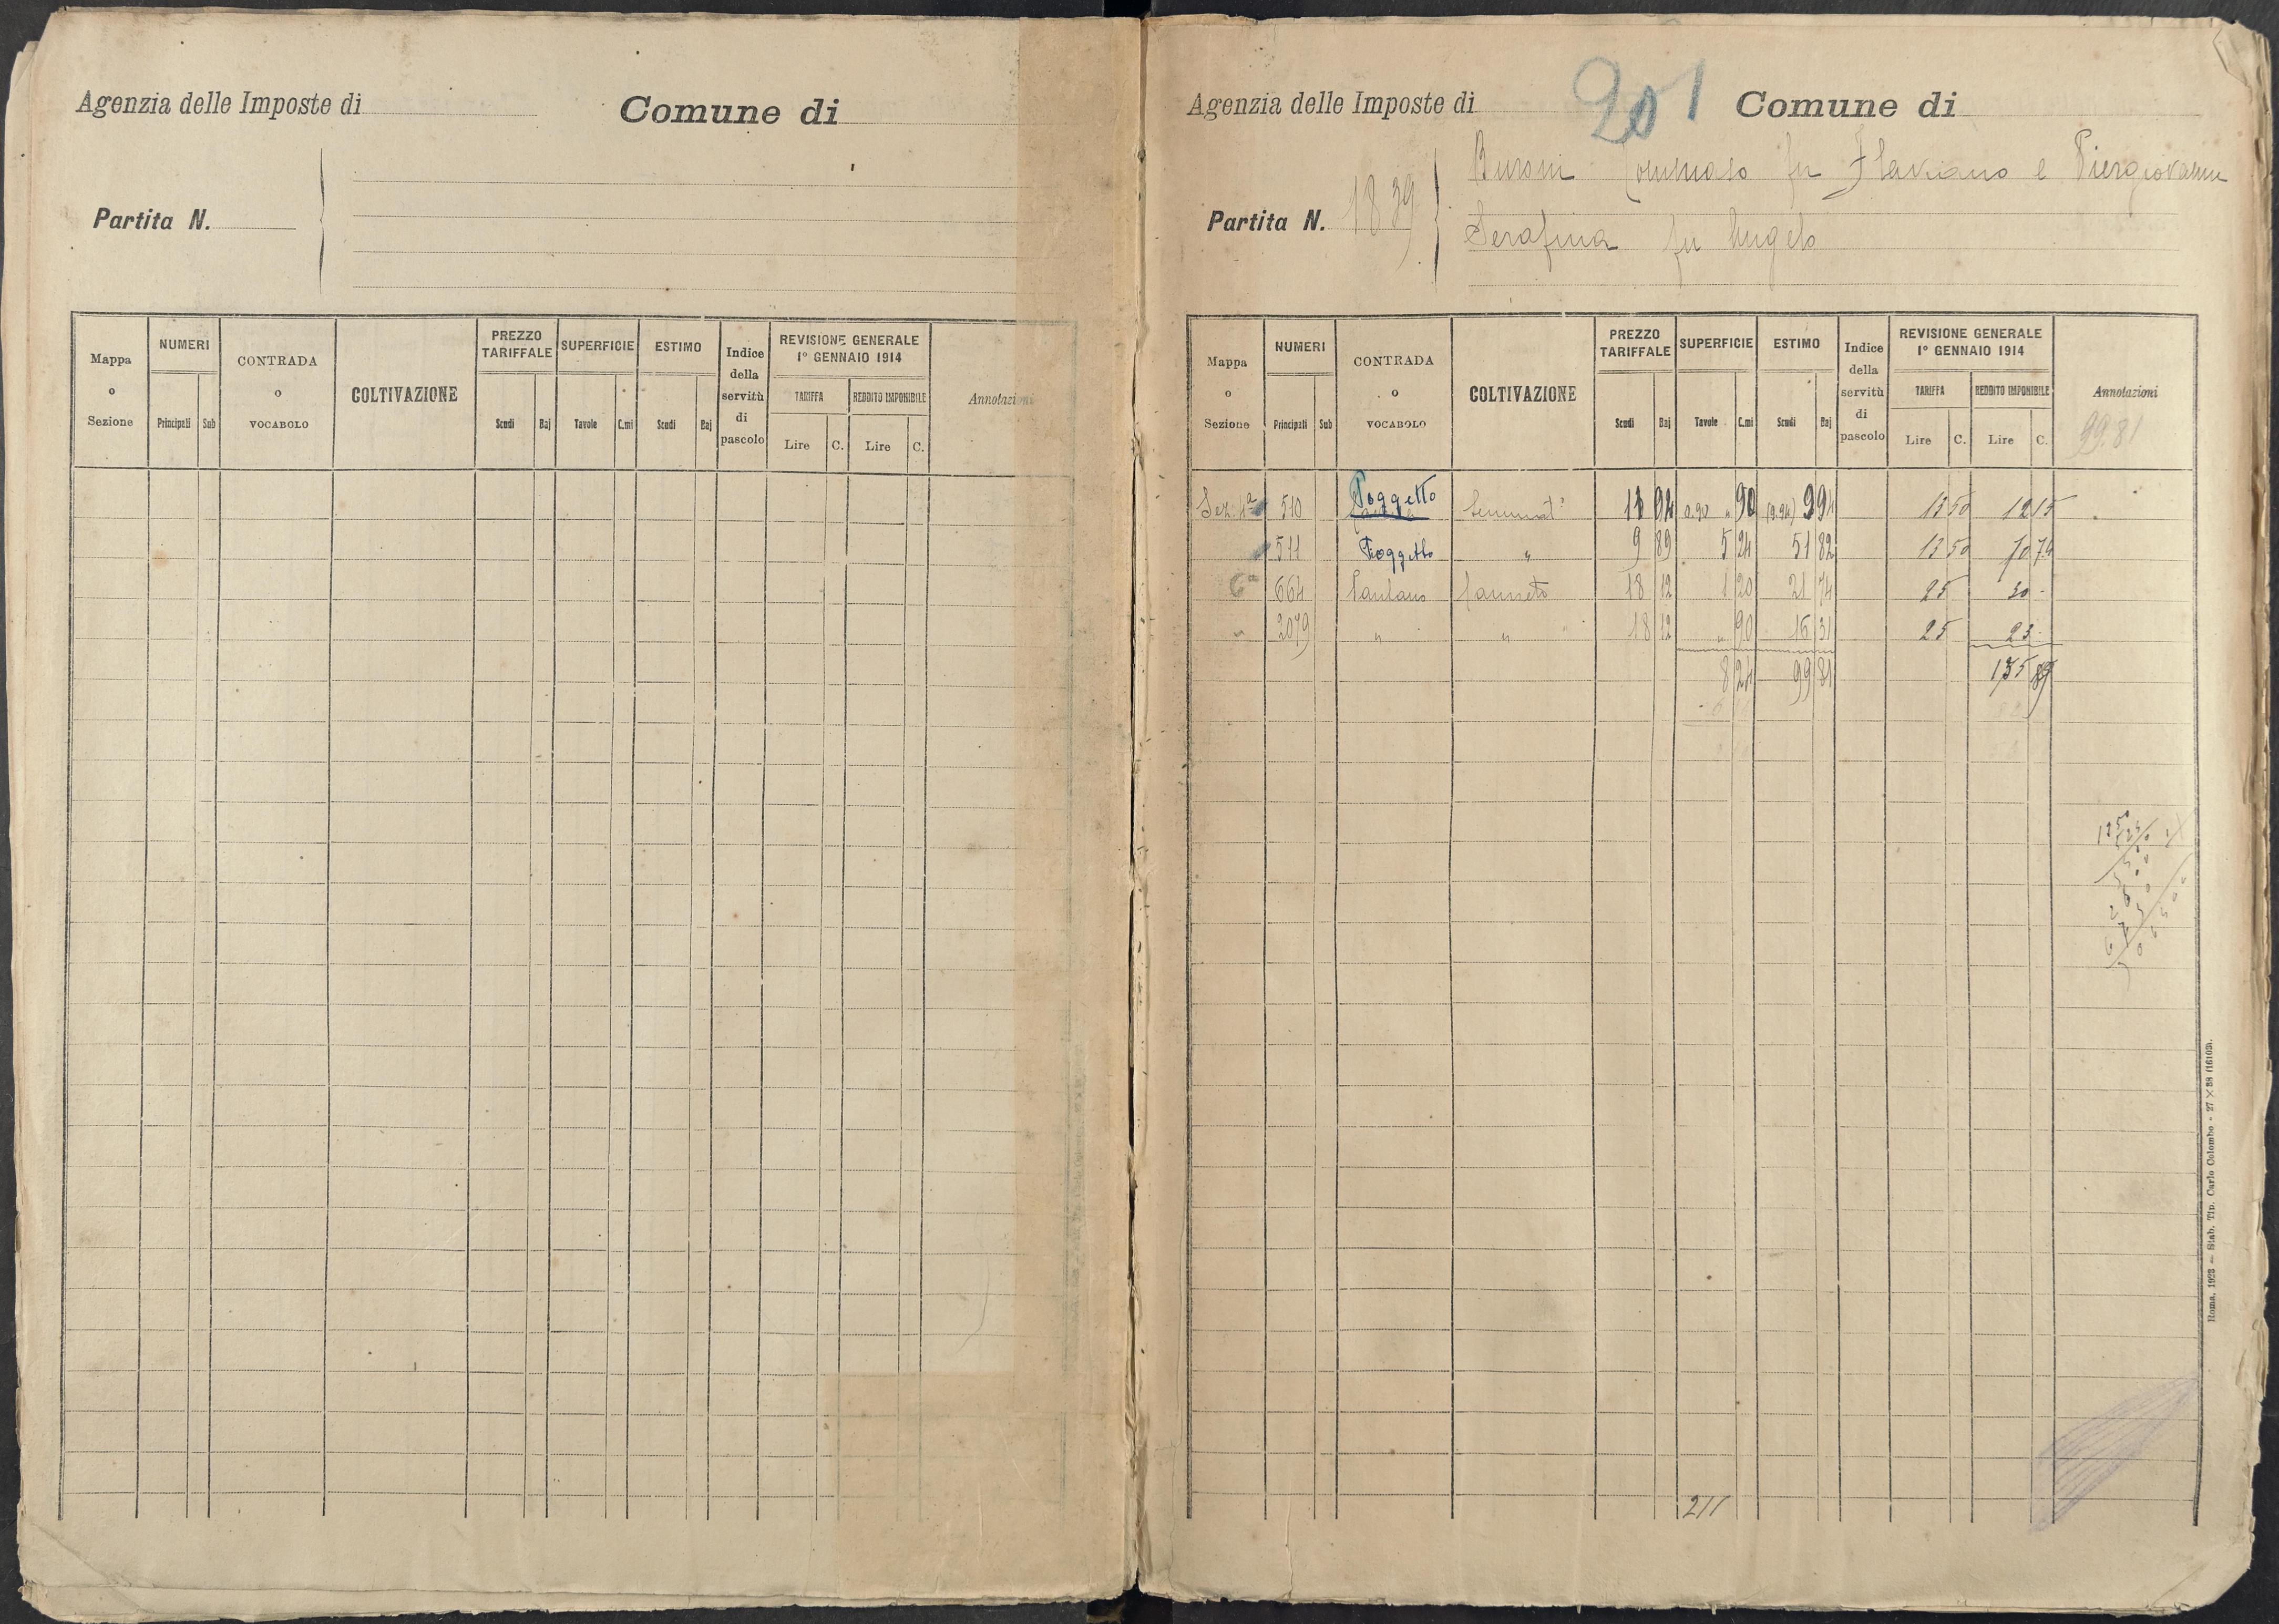 Agenzia delle Imposte di
Comune di
Partita N.
Mappa o Sezione
NUMERI
Principali
Sub
CONTRADA o VOCABOLO
COLTIVAZIONE
PREZZO TARIFFALE
Scudi
Baj
SUPERFICIE
Tavole
C.mi
ESTIMO
Scudi
Baj
Indice della servitù di pascolo
REVISIONE GENERALE 1° GENNAIO 1914
TARIFFA
Lire
C.
REDDITO IMPONIBILE
Lire
C.
Annotazioni
201
Agenzia delle Imposte di
Comune di
Partita N. 1839
Buroni Tommaso fu Flaviano e Piergiovanni
Serafina fu Angelo
Mappa o Sezione
NUMERI
Principali
Sub
CONTRADA o VOCABOLO
COLTIVAZIONE
PREZZO TARIFFALE
Scudi
Baj
SUPERFICIE
Tavole
C.mi
ESTIMO
Scudi
Baj
Indice della servitù di pascolo
REVISIONE GENERALE 1° GENNAIO 1914
TARIFFA
Lire
C.
REDDITO IMPONIBILE
Lire
C.
Annotazioni
99.81
Sez. 4ª 510 Poggetto Seminat° 0.90 " 90 (9.94) 9 94 13 50 12 15
511 Poggetto " 9 89 5 24 51 82 13 50 70 74
6ª 664 Pantano Canneto 18 12 1 20 21 74 25 30 -
" 2079 " " 18 12 " 90 16 31 25 23 -
8 24 99 81 135 89
211
Roma, 1923 — Stab. Tip. Carlo Colombo - 27 × 38 (16103).